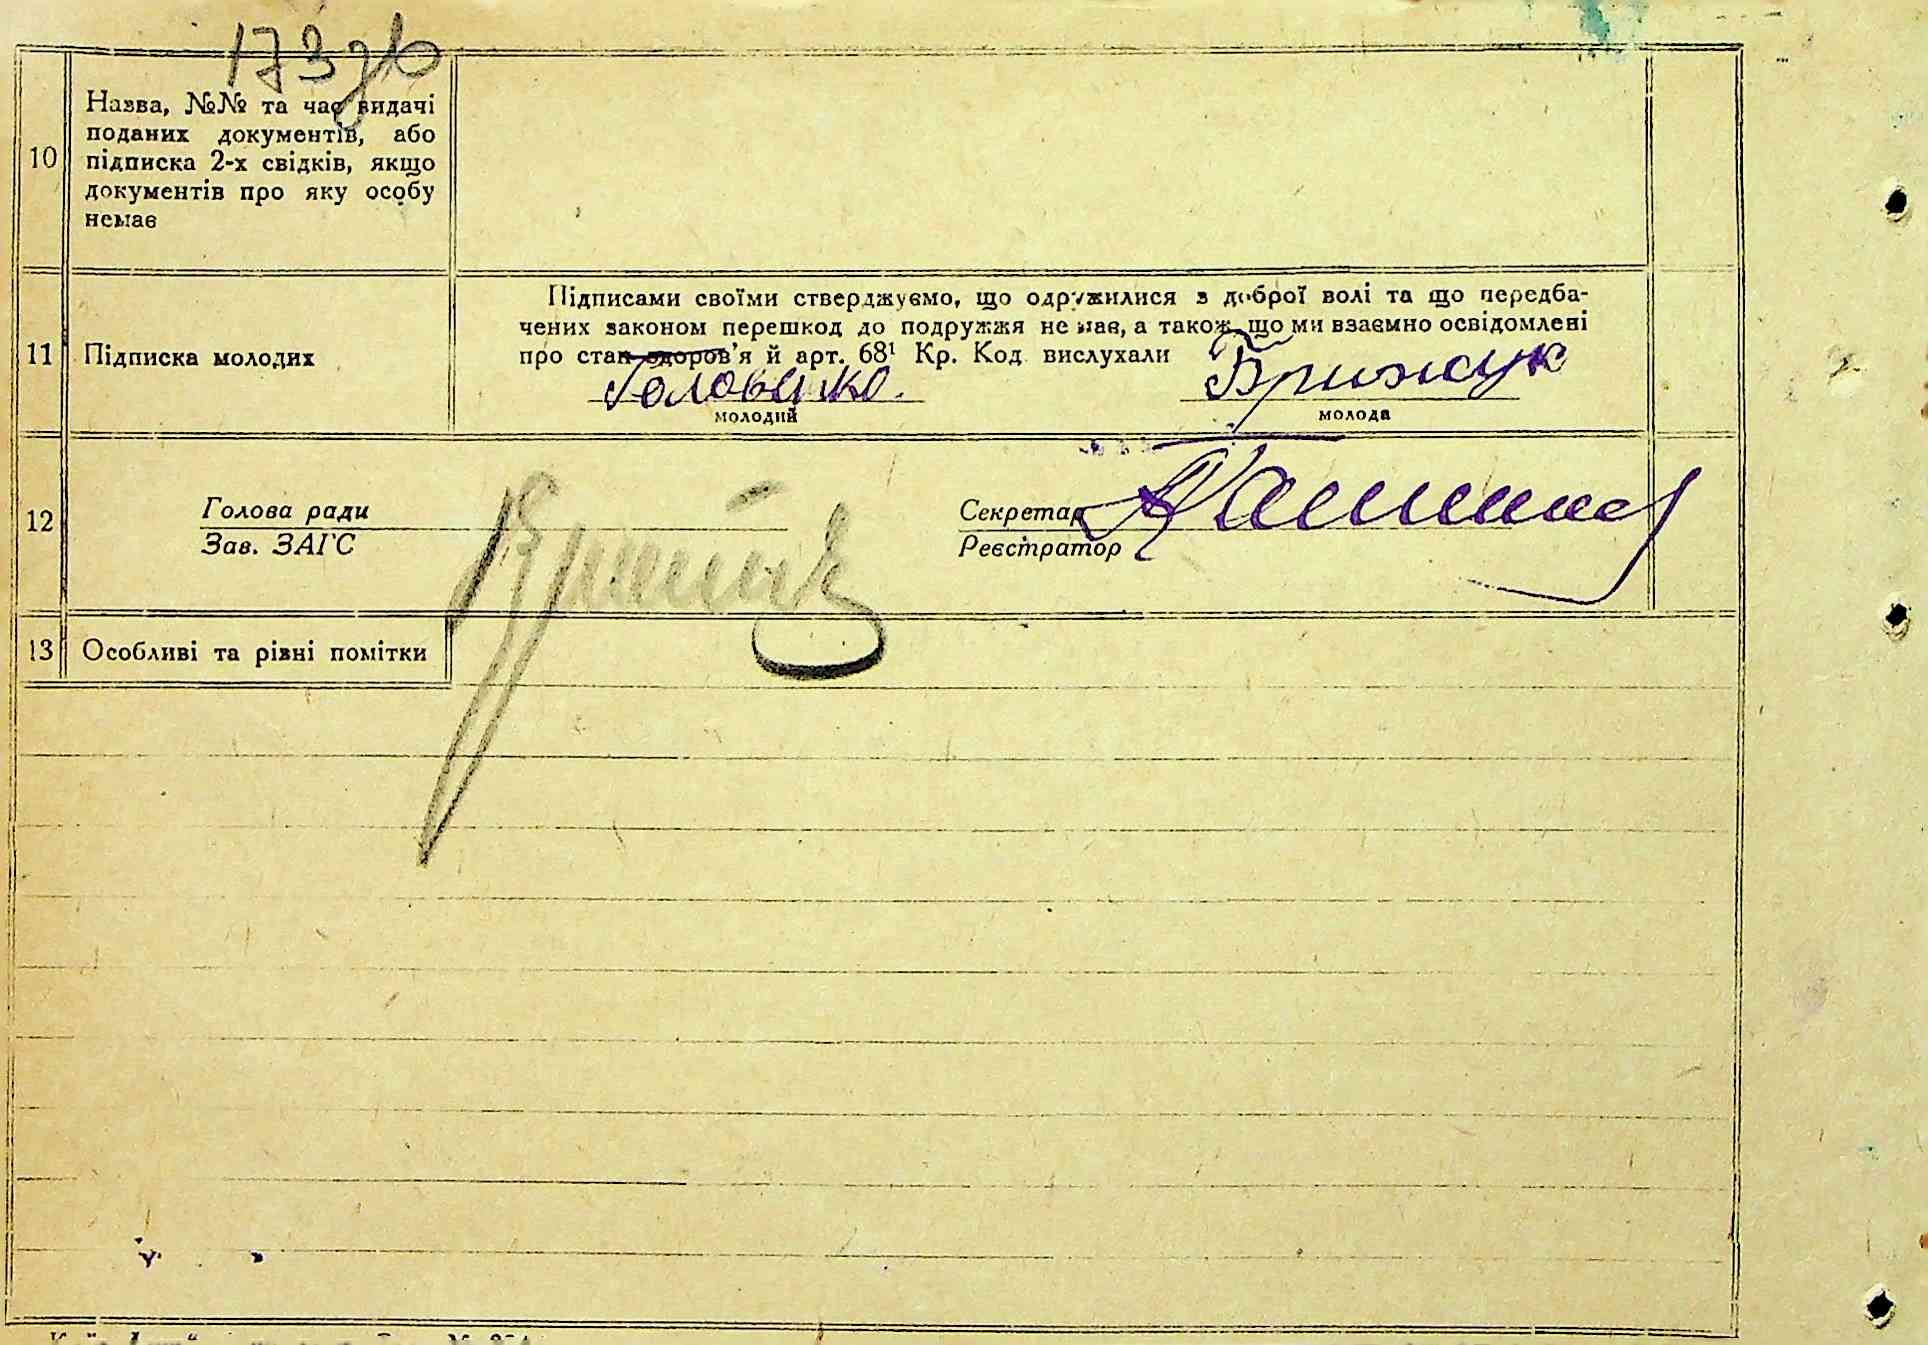 173 зв
10
Назва, №№ та час видачі
поданих документів, або
підписка 2-х свідків, якщо
документів про яку особу
немає
11
Підписка молодих
Підписами своїми стверджуємо, що одружилися з доброї волі та що передба-
чених законом перешкод до подружжя немає, а також що ми взаємно освідомлені
про стан здоров'я й арт. 68¹ Кр. Код. вислухали
Головенко. Брижук
молодий молода
12
Голова ради
Зав. ЗАГС
Секретар
Реєстратор
13
Особливі та різні помітки